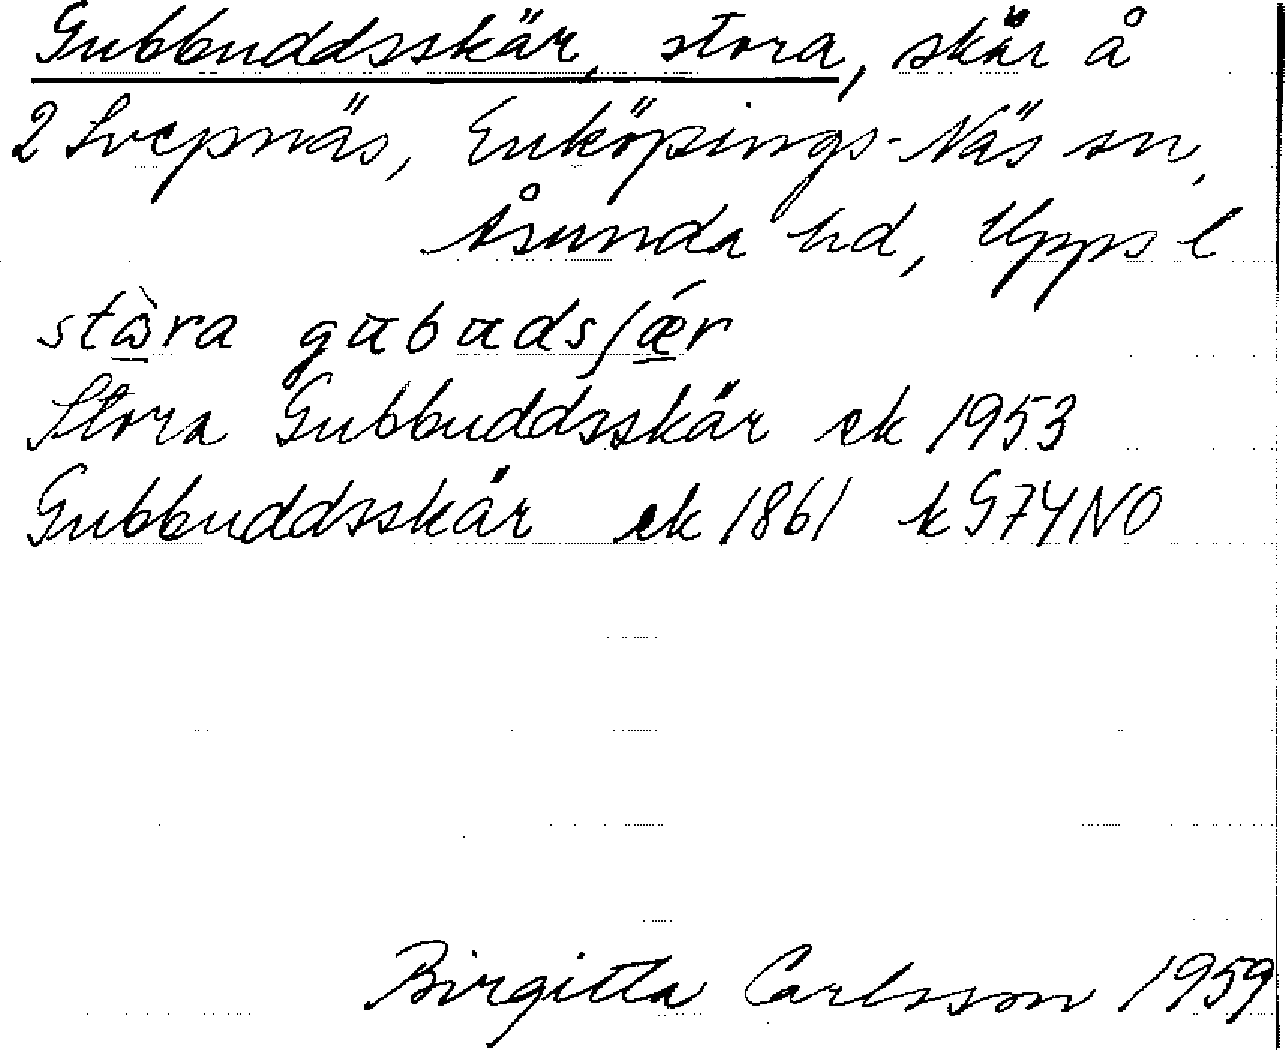 Gubbuddsskär, stora, skär å
2 Svepnäs, Enköpings-Näs sn,
Åsunda hd, Upps l
stɷ̀ra gubudsʃǽr
Stora Gubbuddsskär ek 1953
Gubbuddsskär ek 1861 k G74NO
Birgitta Carlsson 1959